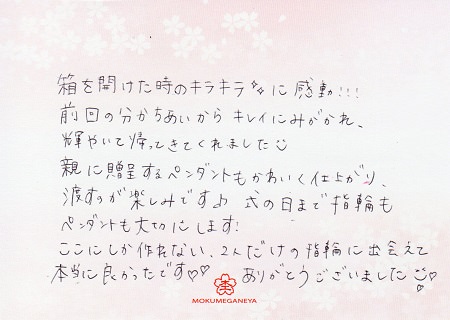 箱を開けた時のキラキラ✨に感動!!!
前回の分かちあいから キレイにみがかれ、
輝やいて帰ってきてくれました☺
親に贈呈するペンダントもかわいく仕上がり、
渡すのが楽しみです♪ 式の日まで指輪も
ペンダントも大切にします!
ここにしか作れない、2人だけの指輪に出会えて
本当に良かったです♡♡ ありがとうございました☺♡
MOKUMEGANEYA